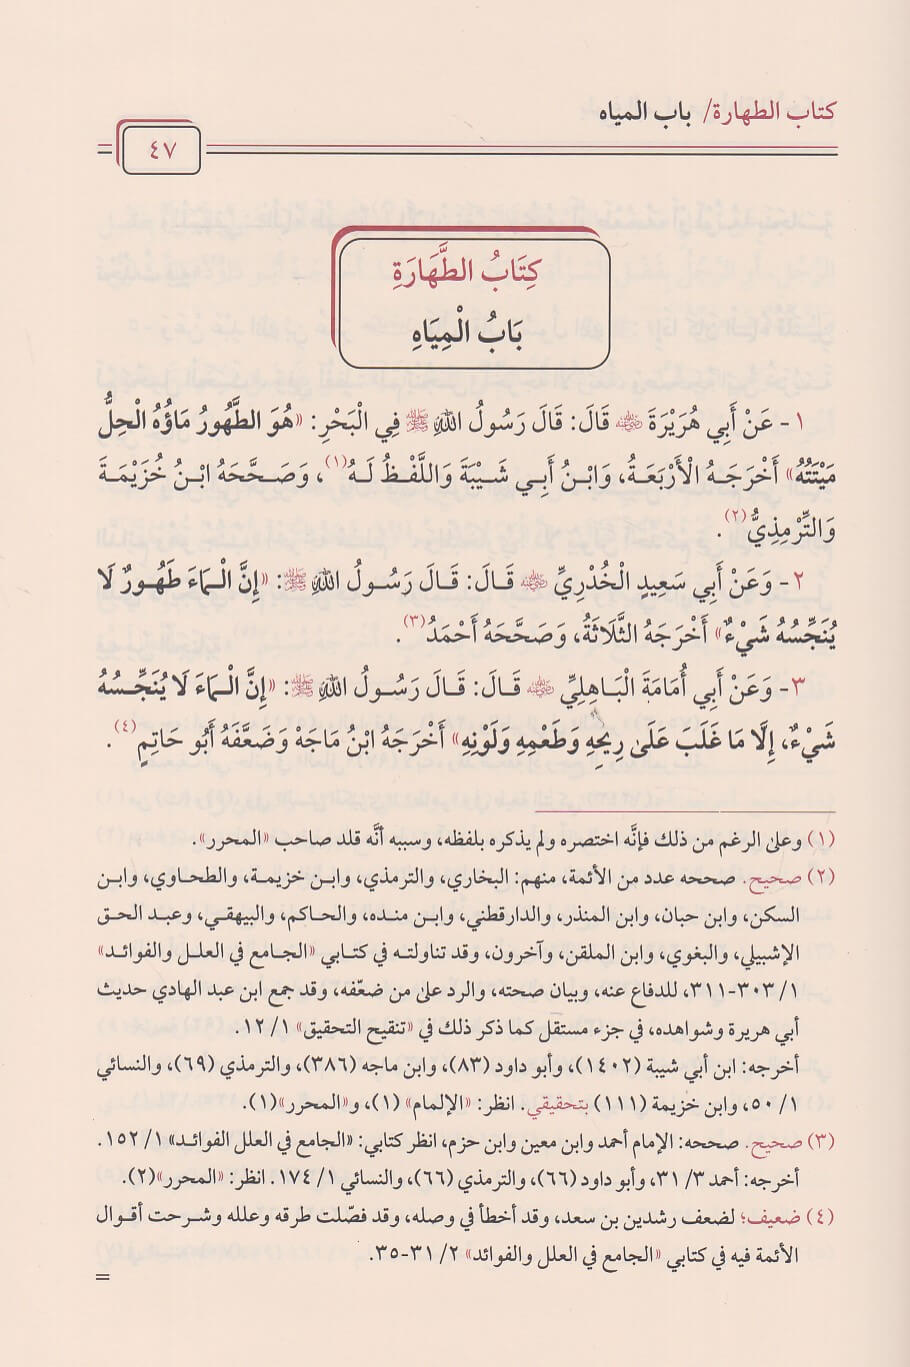 كتاب الطهارة/ باب المياه
٤٧
كِتَابُ الطَّهَارَةِ
بَابُ الْمِيَاهِ
١- عَنْ أَبِي هُرَيْرَةَ ﵁ قَالَ: قَالَ رَسُولُ اللهِ ﷺ فِي الْبَحْرِ: «هُوَ الطَّهُورُ مَاؤُهُ الْحِلُّ
مَيْتَتُهُ» أَخْرَجَهُ الْأَرْبَعَةُ، وَابْنُ أَبِي شَيْبَةَ وَاللَّفْظُ لَهُ(١)، وَصَحَّحَهُ ابْنُ خُزَيْمَةَ
وَالتِّرْمِذِيُّ(٢).
٢- وَعَنْ أَبِي سَعِيدٍ الْخُدْرِيِّ ﵁ قَالَ: قَالَ رَسُولُ اللهِ ﷺ: «إِنَّ الْمَاءَ طَهُورٌ لَا
يُنَجِّسُهُ شَيْءٌ» أَخْرَجَهُ الثَّلَاثَةُ، وَصَحَّحَهُ أَحْمَدُ(٣).
٣- وَعَنْ أَبِي أُمَامَةَ الْبَاهِلِيِّ ﵁ قَالَ: قَالَ رَسُولُ اللهِ ﷺ: «إِنَّ الْمَاءَ لَا يُنَجِّسُهُ
شَيْءٌ، إِلَّا مَا غَلَبَ عَلَى رِيحِهِ وَطَعْمِهِ وَلَوْنِهِ» أَخْرَجَهُ ابْنُ مَاجَهْ وَضَعَّفَهُ أَبُو حَاتِمٍ(٤).
(١) وعلى الرغم من ذلك فإنَّه اختصره ولم يذكره بلفظه، وسببه أنَّه قلد صاحب «المحرر».
(٢) صحيح. صححه عدد من الأئمة، منهم: البخاري، والترمذي، وابن خزيمة، والطحاوي، وابن
السكن، وابن حبان، وابن المنذر، والدارقطني، وابن منده، والحاكم، والبيهقي، وعبد الحق
الإشبيلي، والبغوي، وابن الملقن، وآخرون، وقد تناولته في كتابي «الجامع في العلل والفوائد»
١/ ٣٠٣-٣١١، للدفاع عنه، وبيان صحته، والرد على من ضعّفه، وقد جمع ابن عبد الهادي حديث
أبي هريرة وشواهده، في جزء مستقل كما ذكر ذلك في «تنقيح التحقيق» ١/ ١٢.
أخرجه: ابن أبي شيبة (١٤٠٢)، وأبو داود (٨٣)، وابن ماجه (٣٨٦)، والترمذي (٦٩)، والنسائي
١/ ٥٠، وابن خزيمة (١١١) بتحقيقي. انظر: «الإلمام» (١)، و«المحرر»(١).
(٣) صحيح. صححه: الإمام أحمد وابن معين وابن حزم، انظر كتابي: «الجامع في العلل الفوائد» ١/ ١٥٢.
أخرجه: أحمد ٣/ ٣١، وأبو داود (٦٦)، والترمذي (٦٦)، والنسائي ١/ ١٧٤. انظر: «المحرر»(٢).
(٤) ضعيف؛ لضعف رشدين بن سعد، وقد أخطأ في وصله، وقد فصّلت طرقه وعلله وشرحت أقوال
الأئمة فيه في كتابي «الجامع في العلل والفوائد» ٢/ ٣١-٣٥.
=